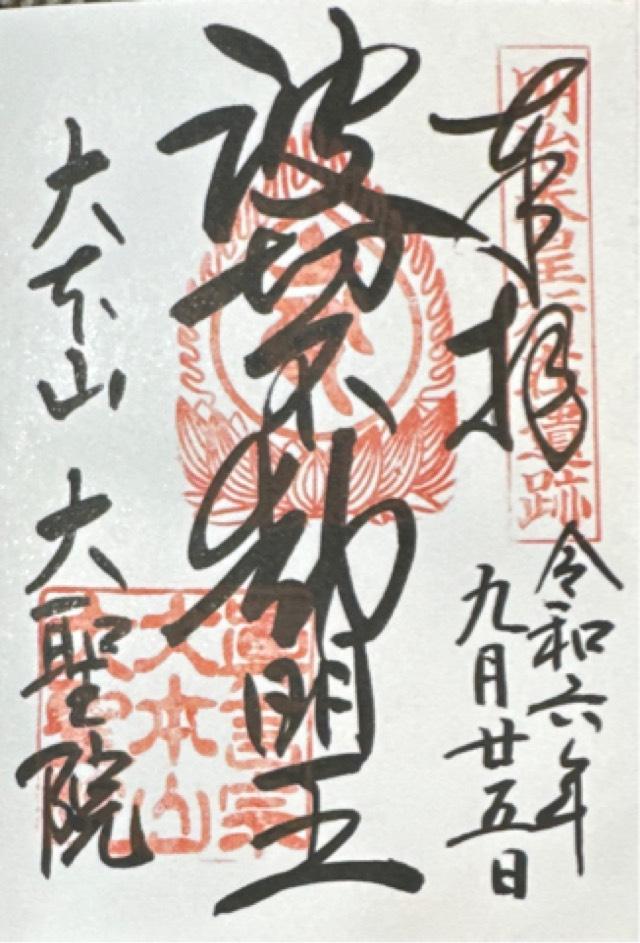 明治天皇行在遺跡
奉拝
令和六年
九月廿五日
波切不動明王
大本山 大聖院
大本山
大聖院